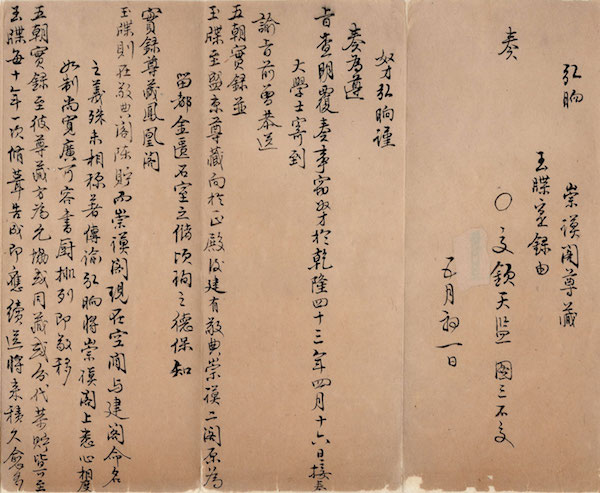 弘晌　崇謨閣尊藏
玉牒實錄由
奏　〇交欽天監　國三不交
五月初一日
奴才弘晌謹
奏為遵
旨查明覆奏事竊奴才於乾隆四十三年四月十六日接奉
大學士寄到
諭旨前曾恭送
五朝實錄並
玉牒至盛京尊藏向於正殿後建有敬典崇謨二閣原為
留都金匱石室之備頃詢之德保知
實錄尊藏鳳凰閣
玉牒則在敬典閣陳貯而崇謨閣現在空閒與建閣命名
之義殊未相稱著傳諭弘晌將崇謨閣上悉心相度
如制尚寬廣可容書廚排列即敬移
五朝實錄至彼尊藏方為允協或同藏或分代恭貯皆可至
玉牒每十年一次脩葺告成即應續送將來積久愈多